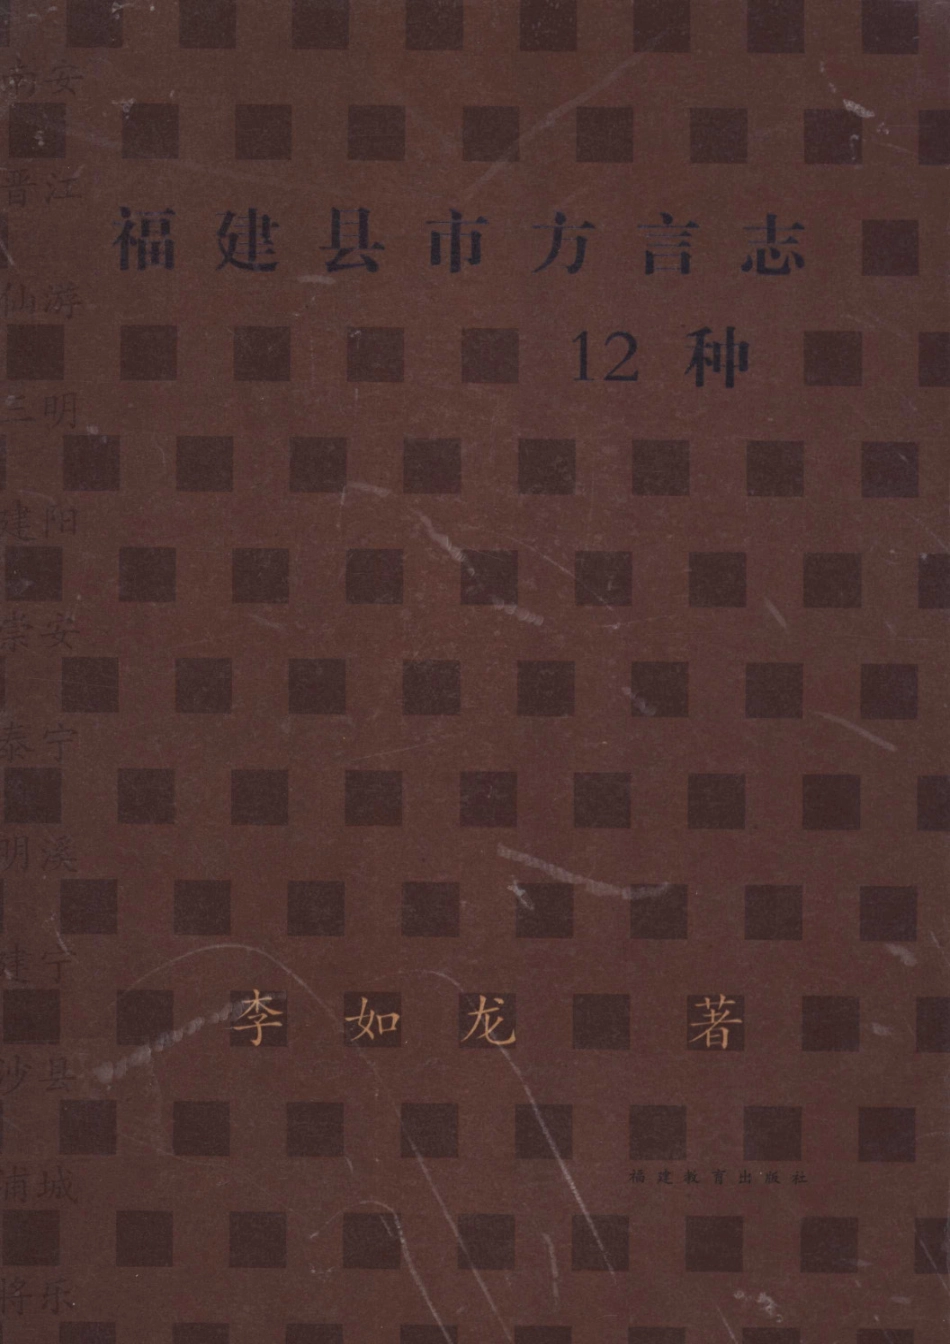 福建县市方言志
12种
李如龙 著
福建教育出版社
南安
晋江
仙游
三明
建阳
崇安
泰宁
明溪
建宁
沙县
浦城
将乐